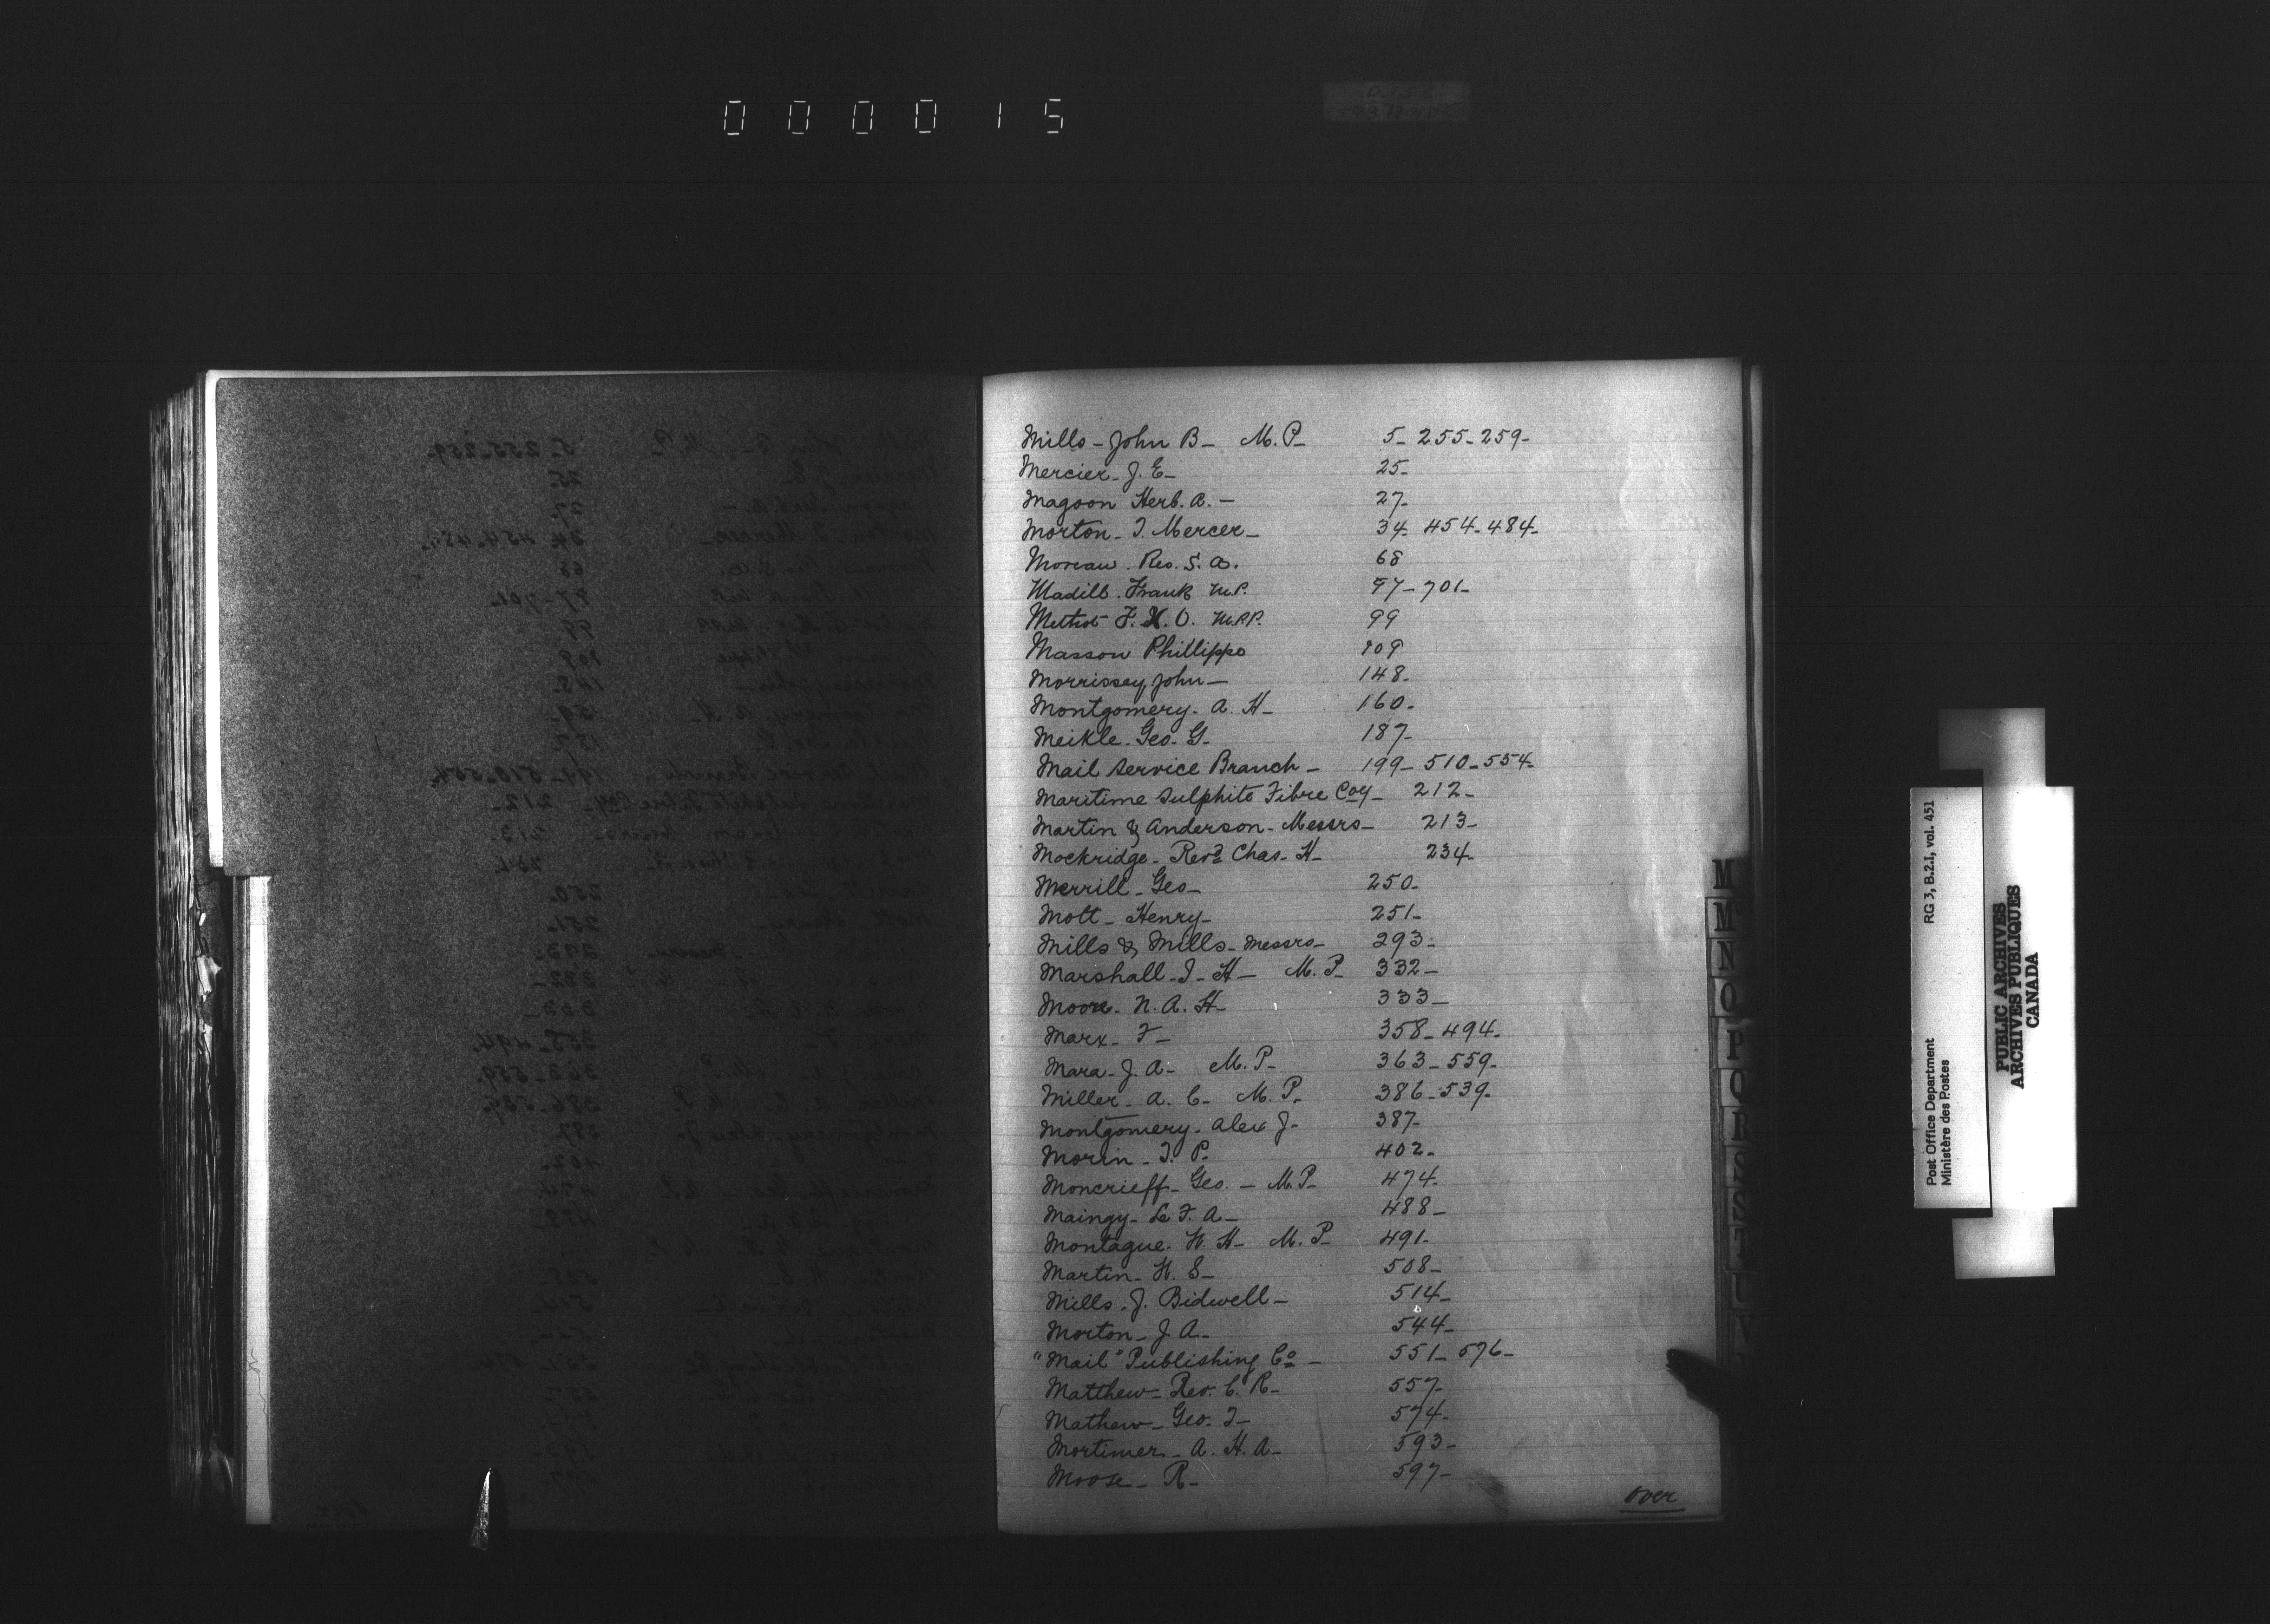 000015
Mills - John B - M.P. 5 - 255 - 259 -
Mercier - J. E - 25 -
Magoon Herb. A. - 27 -
Morton - J. Mercer - 34 - 454 - 484 -
Moreau. Rev. S. A. 68
Madill. Frank M.P. 97 - 701 -
Methot F. X. O. M.P.P. 99
Masson Phillippe 109
Morrissey, John - 148 -
Montgomery - A. H - 160 -
Meikle - Geo. G - 187 -
Mail Service Branch - 199 - 510 - 554 -
Maritime Sulphite Fibre Coy - 212 -
Martin & Anderson - Messrs - 213 -
Mockridge - Revd Chas. H - 234 -
Merrill - Geo - 250 -
Mott - Henry - 251 -
Mills & Mills - Messrs - 293 -
Marshall - J - H - M.P - 332 -
Moore - N. A. H - 333 -
Marx - F - 358 - 494 -
Mara - J. A - M.P - 363 - 559 -
Miller - A. C - M.P. 386 - 539 -
Montgomery - Alex J - 387 -
Morin - J. P - 402 -
Moncrieff - Geo. - M.P - 474 -
Maingy - Le F. A - 488 -
Montague. W. H - M.P - 491 -
Martin - W. S - 508 -
Mills - J. Bidwell - 514 -
Morton - J. A - 544 -
"Mail" Publishing Co - 551 - 576 -
Matthew - Rev. C. R - 557 -
Mathew - Geo. J - 574 -
Mortimer - A. H. A - 593 -
Moose - R - 597 -
over
M
M
N
O
P
Q
R
S
T
U
V
Post Office Department RG 3, B.2.I, vol. 451
Ministère des Postes
PUBLIC ARCHIVES
ARCHIVES PUBLIQUES
CANADA